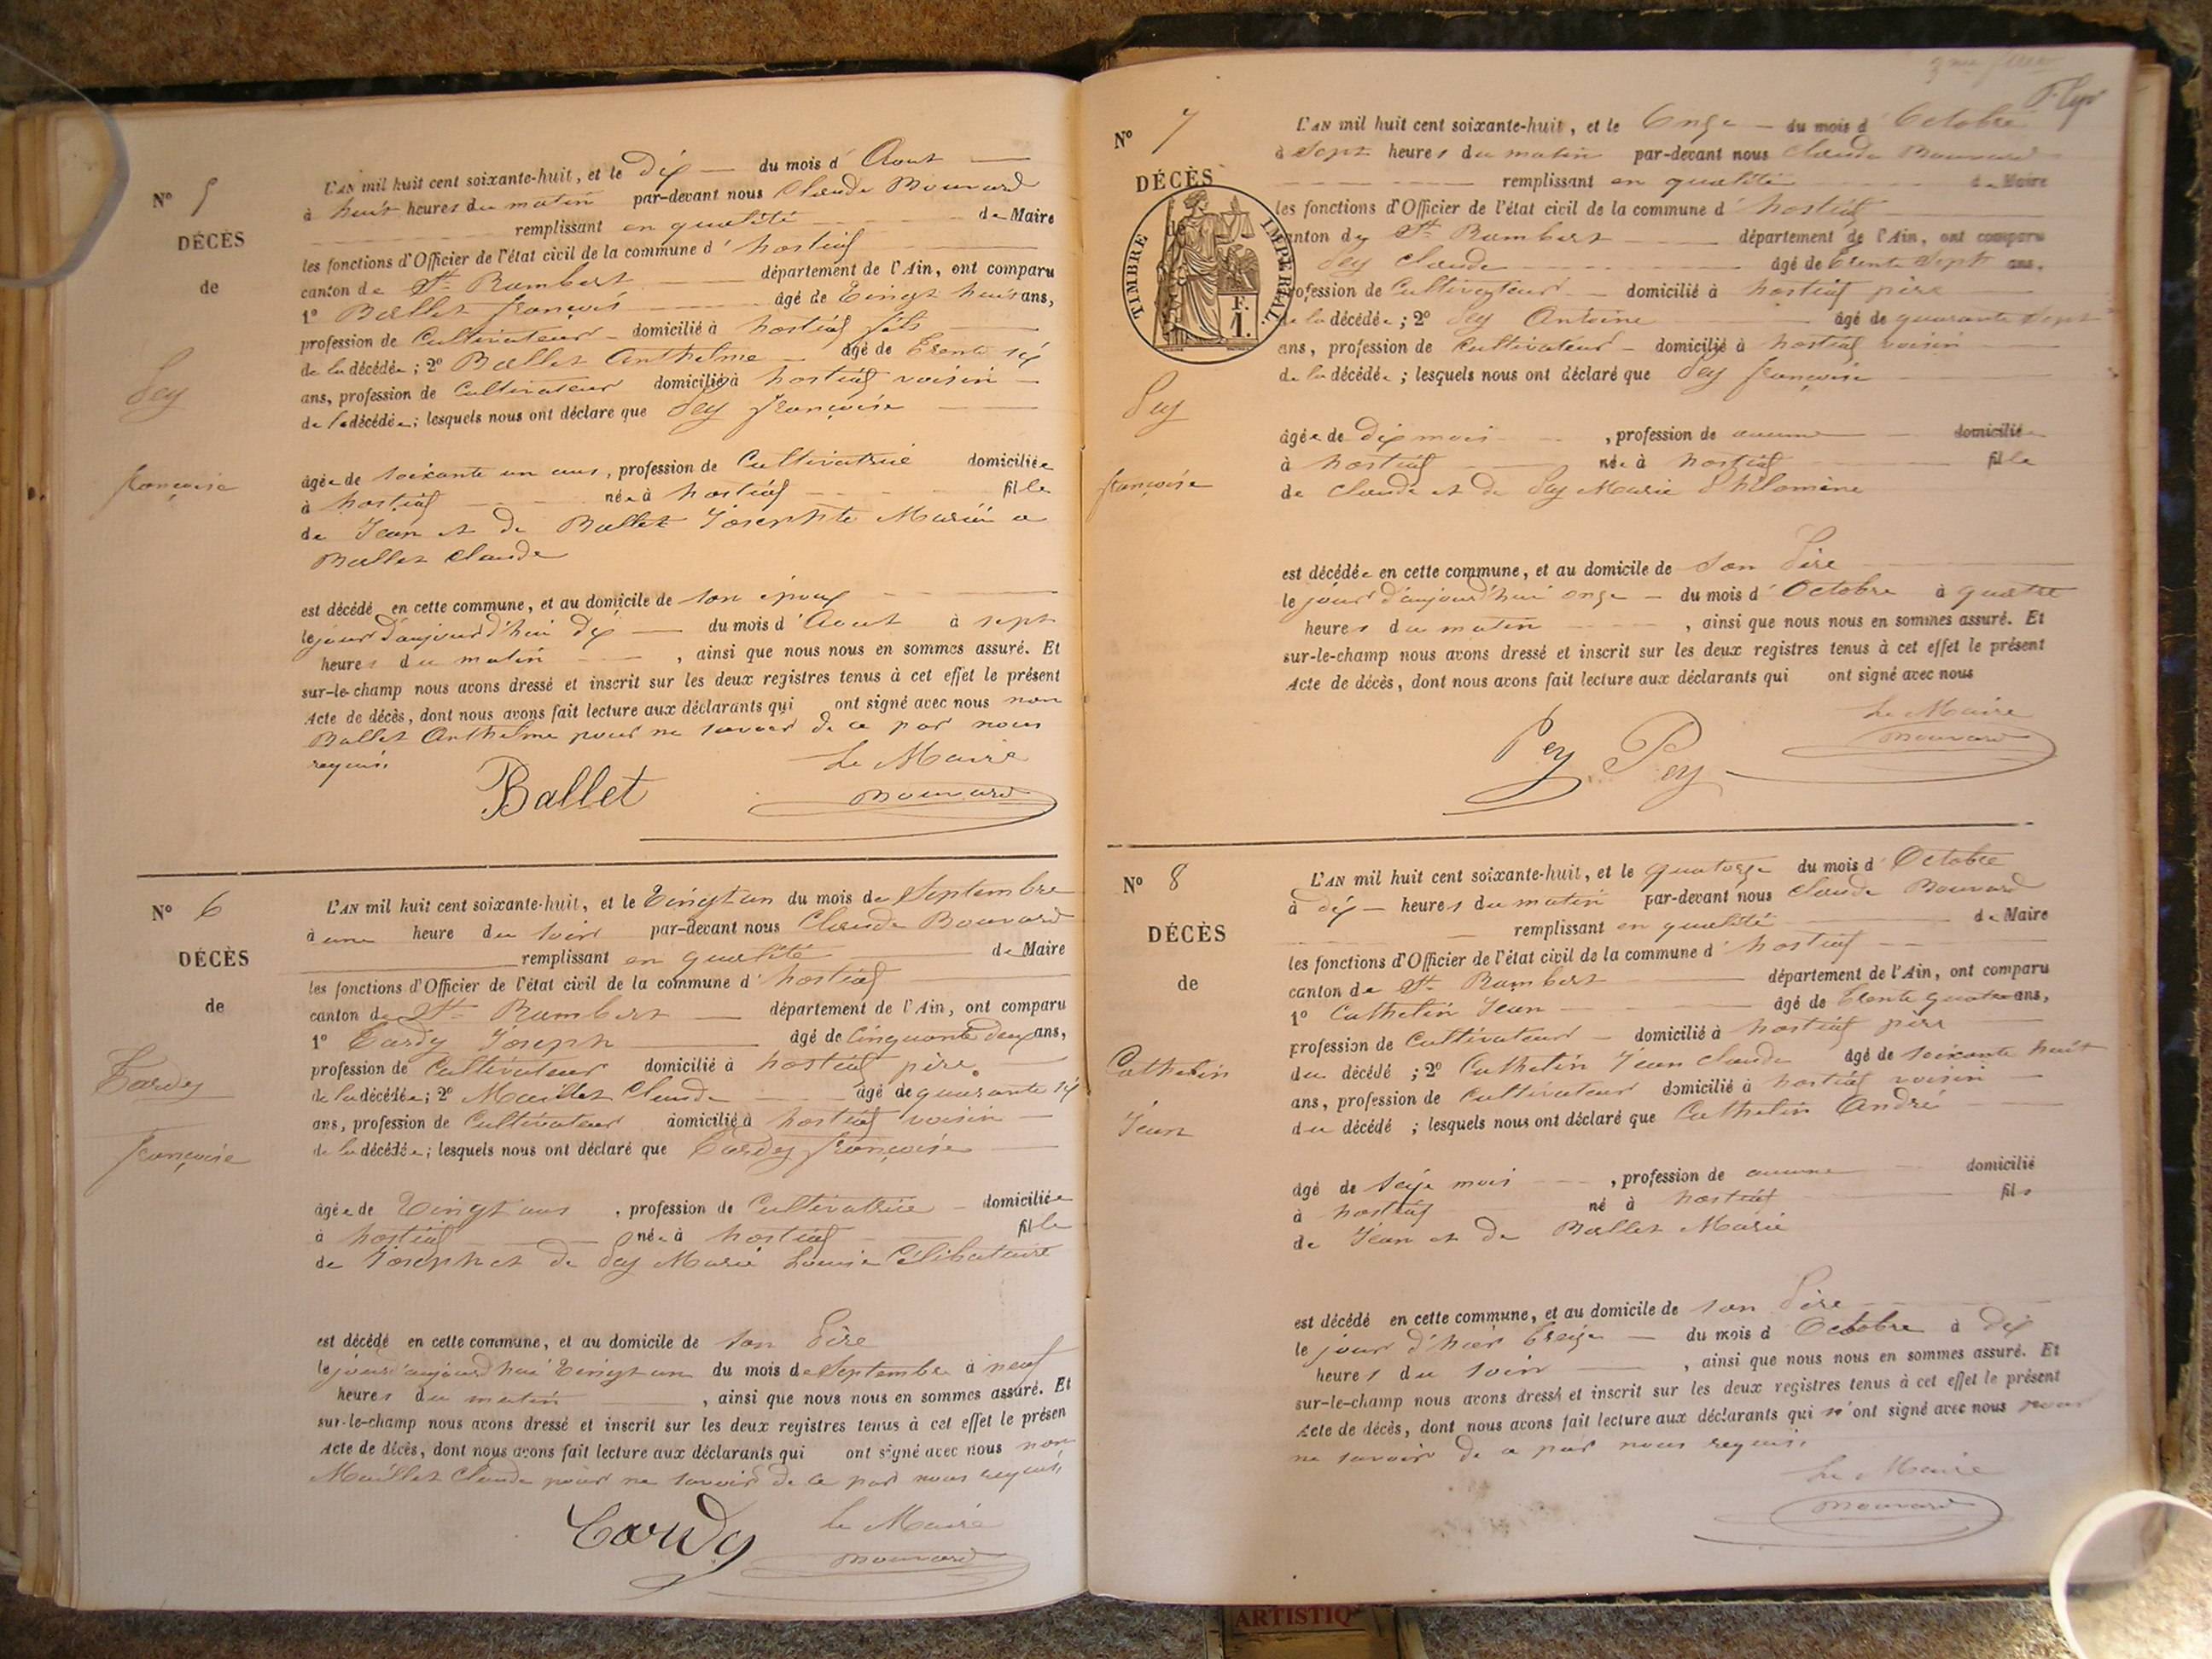 N° 5
DÉCÈS
de
Pey
françoise
L'AN mil huit cent soixante-huit, et le Dix du mois d'Aout
à huit heures du matin par-devant nous Claude Bouvard
remplissant en qualité de Maire
les fonctions d'Officier de l'état civil de la commune d'hostiaz
canton de St Rambert département de l'Ain, ont comparu
1° Ballet françois âgé de Vingt huit ans,
profession de Cultivateur domicilié à hostiaz fils
de la décédée; 2° Ballet Anthelme âgé de trente six
ans, profession de Cultivateur domicilié à hostiaz voisin
de la décédée; lesquels nous ont déclaré que Pey françoise
âgée de soixante un ans, profession de Cultivatrice domiciliée
à hostiaz née à hostiaz fille
de Jean et de Ballet Josephte Mariée a
Ballet Claude
est décédé en cette commune, et au domicile de son époux
le jour d'aujourd'hui dix du mois d'Aout à sept
heures du matin, ainsi que nous nous en sommes assuré. Et
sur-le-champ nous avons dressé et inscrit sur les deux registres tenus à cet effet le présent
Acte de décès, dont nous avons fait lecture aux déclarants qui ont signé avec nous non
Ballet Anthelme pour ne savoir de ce par nous
requis
Le Maire
Ballet
Bouvard
N° 6
DÉCÈS
de
Tardy
françoise
L'AN mil huit cent soixante-huit, et le Vingt un du mois de Septembre
à une heure du soir par-devant nous Claude Bouvard
remplissant en qualité de Maire
les fonctions d'Officier de l'état civil de la commune d'hostiaz
canton de St Rambert département de l'Ain, ont comparu
1° Tardy Joseph âgé de Cinquante deux ans,
profession de Cultivateur domicilié à hostiaz père
de la décédée; 2° Maillet Claude âgé de quarante six
ans, profession de Cultivateur domicilié à hostiaz voisin
de la décédée; lesquels nous ont déclaré que Tardy françoise
âgée de Vingt ans, profession de Cultivatrice domiciliée
à hostiaz née à hostiaz fille
de Joseph et de Pey Marie Louise Célibataire
est décédé en cette commune, et au domicile de son Père
le jour d'aujourd'hui Vingt un du mois de Septembre à neuf
heures du matin, ainsi que nous nous en sommes assuré. Et
sur-le-champ nous avons dressé et inscrit sur les deux registres tenus à cet effet le présen
Acte de décès, dont nous avons fait lecture aux déclarants qui ont signé avec nous non
Maillet Claude pour ne savoir de ce par nous requis
Tardy
Le Maire
Bouvard
N° 7
DÉCÈS
de
TIMBRE IMPERIAL
F.
1.
Pey
françoise
L'AN mil huit cent soixante-huit, et le Onze du mois d'Octobre
à Sept heures du matin par-devant nous Claude Bouvard
remplissant en qualité de Maire
les fonctions d'Officier de l'état civil de la commune d'hostiaz
canton de St Rambert département de l'Ain, ont comparu
Pey Claude âgé de trente Sept ans,
profession de Cultivateur domicilié à hostiaz père
de la décédée; 2° Pey Antoine âgé de quarante Sept
ans, profession de Cultivateur domicilié à hostiaz voisin
de la décédée; lesquels nous ont déclaré que Pey françoise
âgée de dix mois, profession de aucune domiciliée
à hostiaz née à hostiaz fille
de Claude et de Pey Marie Philomène
est décédée en cette commune, et au domicile de son Père
le jour d'aujourd'hui onze du mois d'Octobre à quatre
heures du matin, ainsi que nous nous en sommes assuré. Et
sur-le-champ nous avons dressé et inscrit sur les deux registres tenus à cet effet le présent
Acte de décès, dont nous avons fait lecture aux déclarants qui ont signé avec nous
Le Maire
Pey Pey
Bouvard
N° 8
DÉCÈS
de
Cathelin
Jean
L'AN mil huit cent soixante-huit, et le quatorze du mois d'Octobre
à dix heures du matin par-devant nous Claude Bouvard
remplissant en qualité de Maire
les fonctions d'Officier de l'état civil de la commune d'hostiaz
canton de St Rambert département de l'Ain, ont comparu
1° Cathelin Jean âgé de trente quatre ans,
profession de Cultivateur domicilié à hostiaz père
du décédé; 2° Cathelin Jean Claude âgé de soixante huit
ans, profession de Cultivateur domicilié à hostiaz voisin
du décédé; lesquels nous ont déclaré que Cathelin André
âgé de seize mois, profession de aucune domicilié
à hostiaz né à hostiaz fils
de Jean et de Ballet Marie
est décédé en cette commune, et au domicile de son Père
le jour d'hier treize du mois d'Octobre à dix
heures du soir, ainsi que nous nous en sommes assuré. Et
sur-le-champ nous avons dressé et inscrit sur les deux registres tenus à cet effet le présent
Acte de décès, dont nous avons fait lecture aux déclarants qui n'ont signé avec nous pour
ne savoir de ce par nous requis
Le Maire
Bouvard
ARTISTIQ